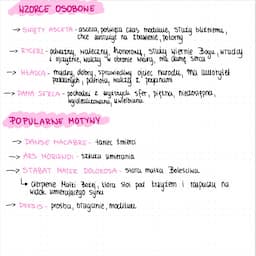 WZORCE OSOBOWE
→ ŚWIĘTY ASCETA - asceza, poświęca czas modlitwie, służy bliźniemu,
chce zasłużyć na zbawienie, pokorny
→ RYCERZ - odważny, waleczny, honorowy, służy wiernie Bogu, władcy
i ojczyźnie, walczy w obronie wiary, ma damę serca
→ WŁADCA - mądry, dobry, sprawiedliwy ojciec narodu, ma autorytet
poddanych, patriota, walczy z poganami
→ DAMA SERCA - pochodzi z wyższych sfer, piękna, niedostępna,
wyidealizowana, uwielbiana
POPULARNE MOTYWY
→ DANSE MACABRE - taniec śmierci
→ ARS MORIENDI - sztuka umierania
→ STABAT MATER DOLOROSA - stała matka boleściwa
↳ cierpienie Matki Bożej, która stoi pod krzyżem i rozpacza na
widok umierającego syna
→ DEESIS - prośba, błaganie, modlitwa